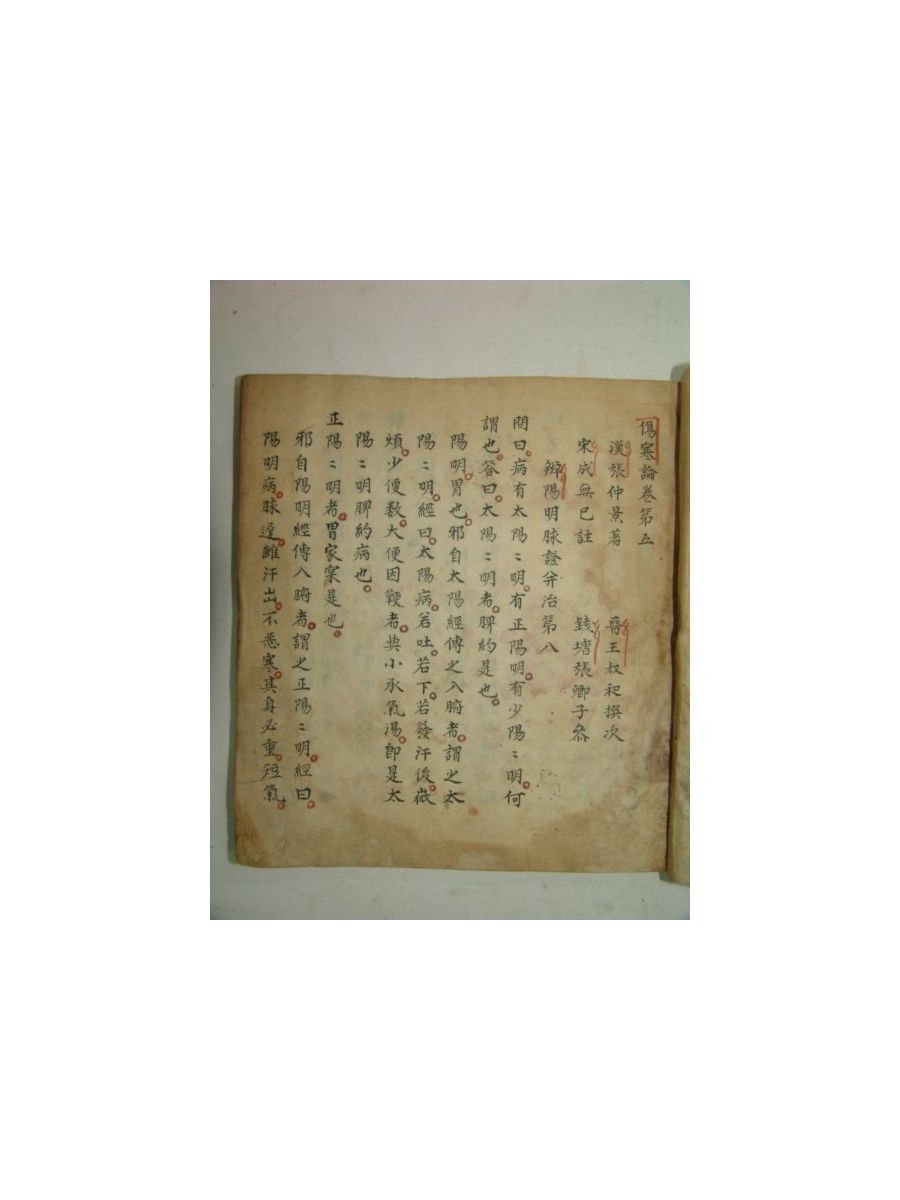 傷寒論卷第五
漢張仲景著　晉王叔和撰次
宋成無已註　錢塘張卿子參
辨陽明脉證并治第八
問曰病有太陽〻明有正陽明有少陽〻明何
謂也答曰太陽〻明者脾約是也
陽明胃也邪自太陽經傳之入腑者謂之太
陽〻明經曰太陽病若吐若下若發汗後微
煩少便数大便因鞕者與小承氣湯即是太
陽〻明脾約病也
正陽〻明者胃家宲是也
邪自陽明經傳入腑者謂之正陽〻明經曰
陽明病脉遲雖汗出不惡寒其身必重短氣